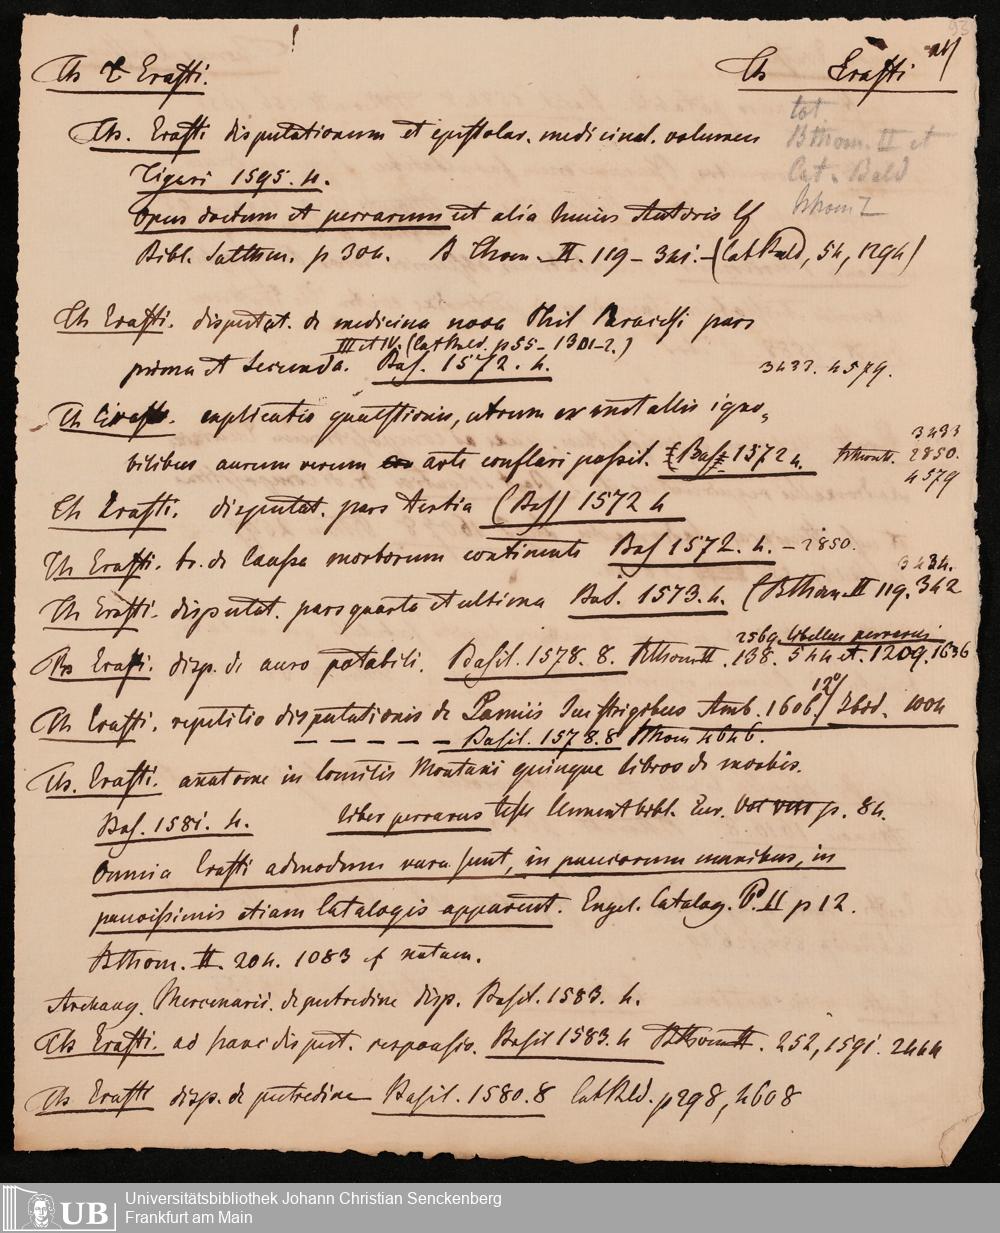 Th Erasti.
Th Erasti
tot.
Bthom. II et
Cat. Bald
Bthom I
Th. Erasti disputationum et epistolar. medicinal. volumen
Tiguri 1595. 4.
Opus doctum et perrarum et alia hujus Autoris
Bibl. Salthen. p 304. B Thom. II. 119 - 341. - (Cat Bald, 54, 1294)
Th Erasti. disputat. de medicina nova Phil Paracelsi pars
III et IV. (Cat Bald. p 55 - 1301-2.)
prima et secunda. Bas. 1572. 4.
3433. 4579.
Th Erasti. explicatio quaestionis, utrum ex metallis igno-
3433
bilibus aurum verum arte conflari possit. (Bas 1572 4. Bthom. 2850.
4579
Th Erasti. disputat. pars tertia (Bas) 1572 4
Th Erasti. tr. de causa morborum continente Bas 1572. 4. - 2850.
3434.
Th Erasti. disputat. pars quarta et ultima Bas. 1573. 4. (Bthom. II 119. 342
2569. libellus perrarus
Th Erasti. disp. de auro potabili. Basil. 1578. 8. Bthom II. 138. 544 et. 1209. 1636
Th Erasti. repetitio disputationis de Lamiis seu strigibus Amb. 1606. 12°/ Ibid. 1004
- - - - - Basil. 1578. 8 Bthom 4646.
Th. Erasti. anatome in comitis Montani quinque libros de morbis.
Bas. 1581. 4. Liber perrarus teste Clement bibl. Cur. Vol VIII p. 84.
Omnia Erasti admodum rara sunt, in paucorum manibus, in
paucissimis etiam Catalogis apparent. Engel. Catalog. P. II p 12.
Bthom. II. 204. 1083 cf notam.
Archang. Mercenarii. de putredine disp. Basil. 1583. 4.
Th Erasti. ad hanc disput. responsio. Basil 1583. 4 Bthom II. 252, 1591. 2444
Th Erasti disp. de putredine Basil. 1580. 8 Cat Bld. p 298, 4608
UB
Universitätsbibliothek Johann Christian Senckenberg
Frankfurt am Main